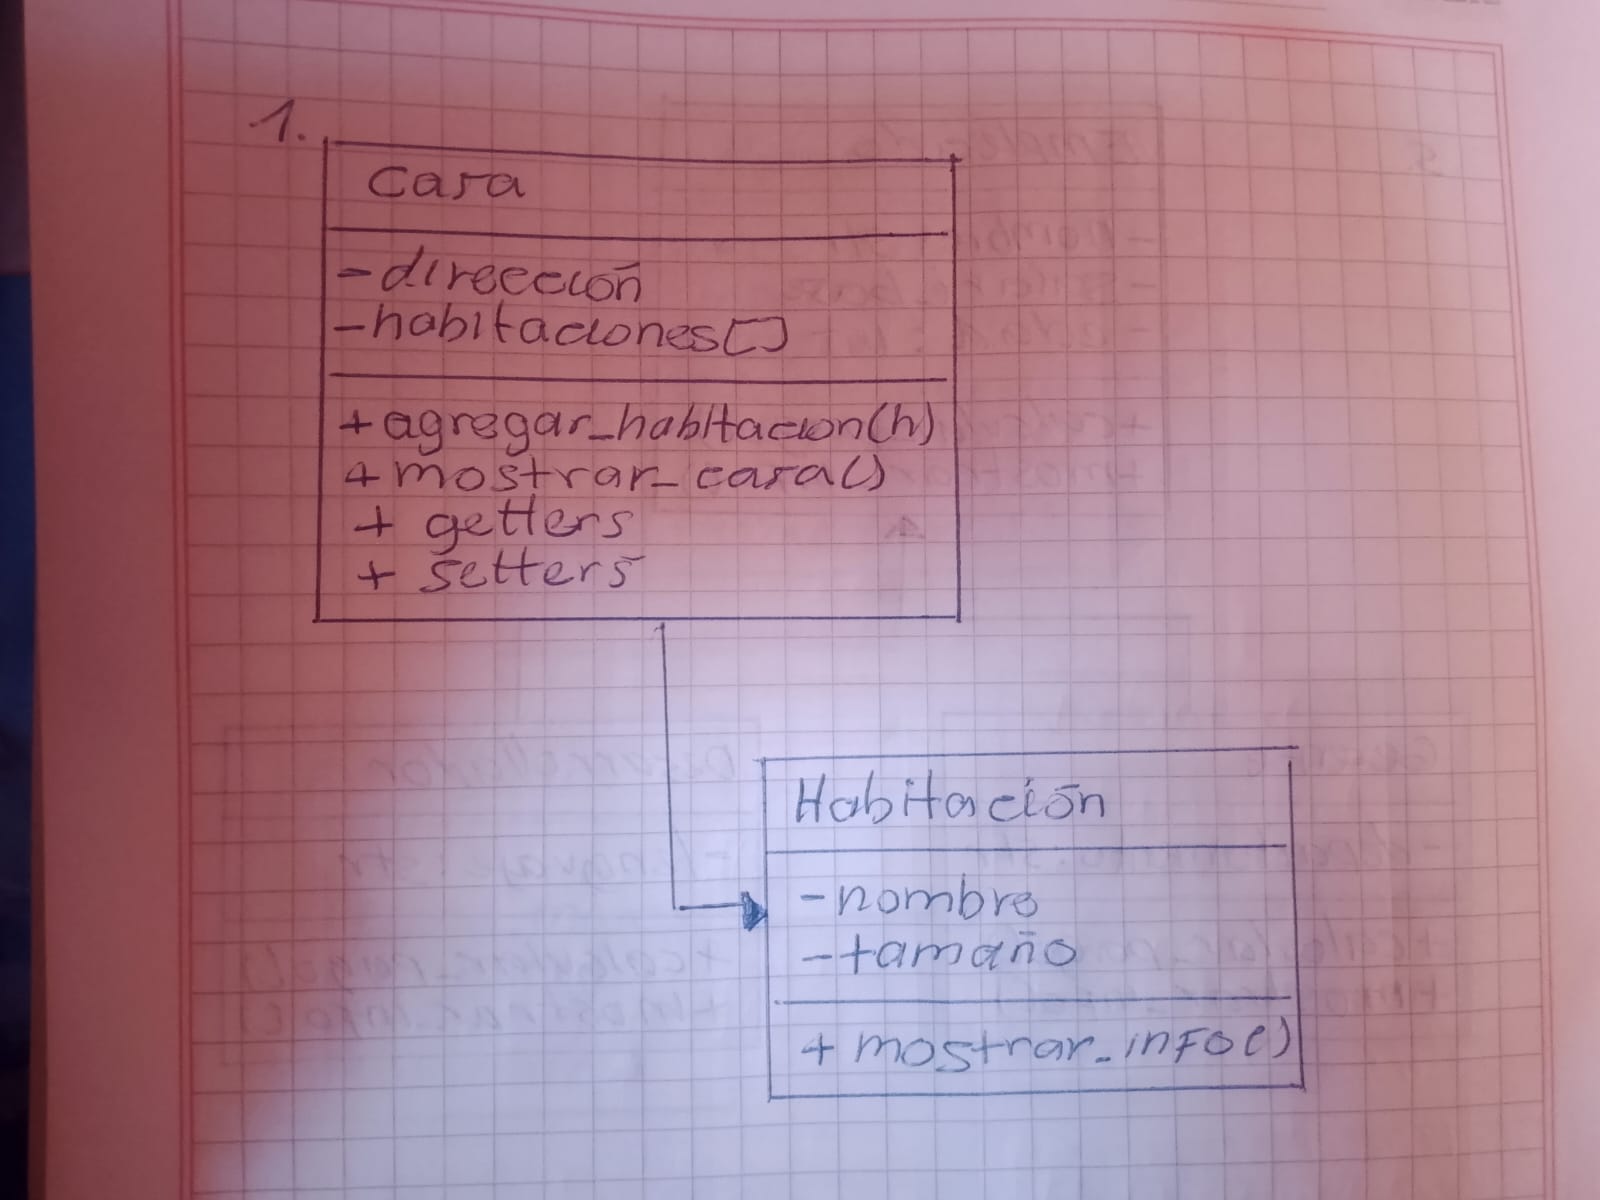 1.
Casa
-dirección
-habitaciones[]
+agregar_habitacion(h)
+mostrar_casa()
+ getters
+ setters
Habitación
-nombre
-tamaño
+ mostrar_info()